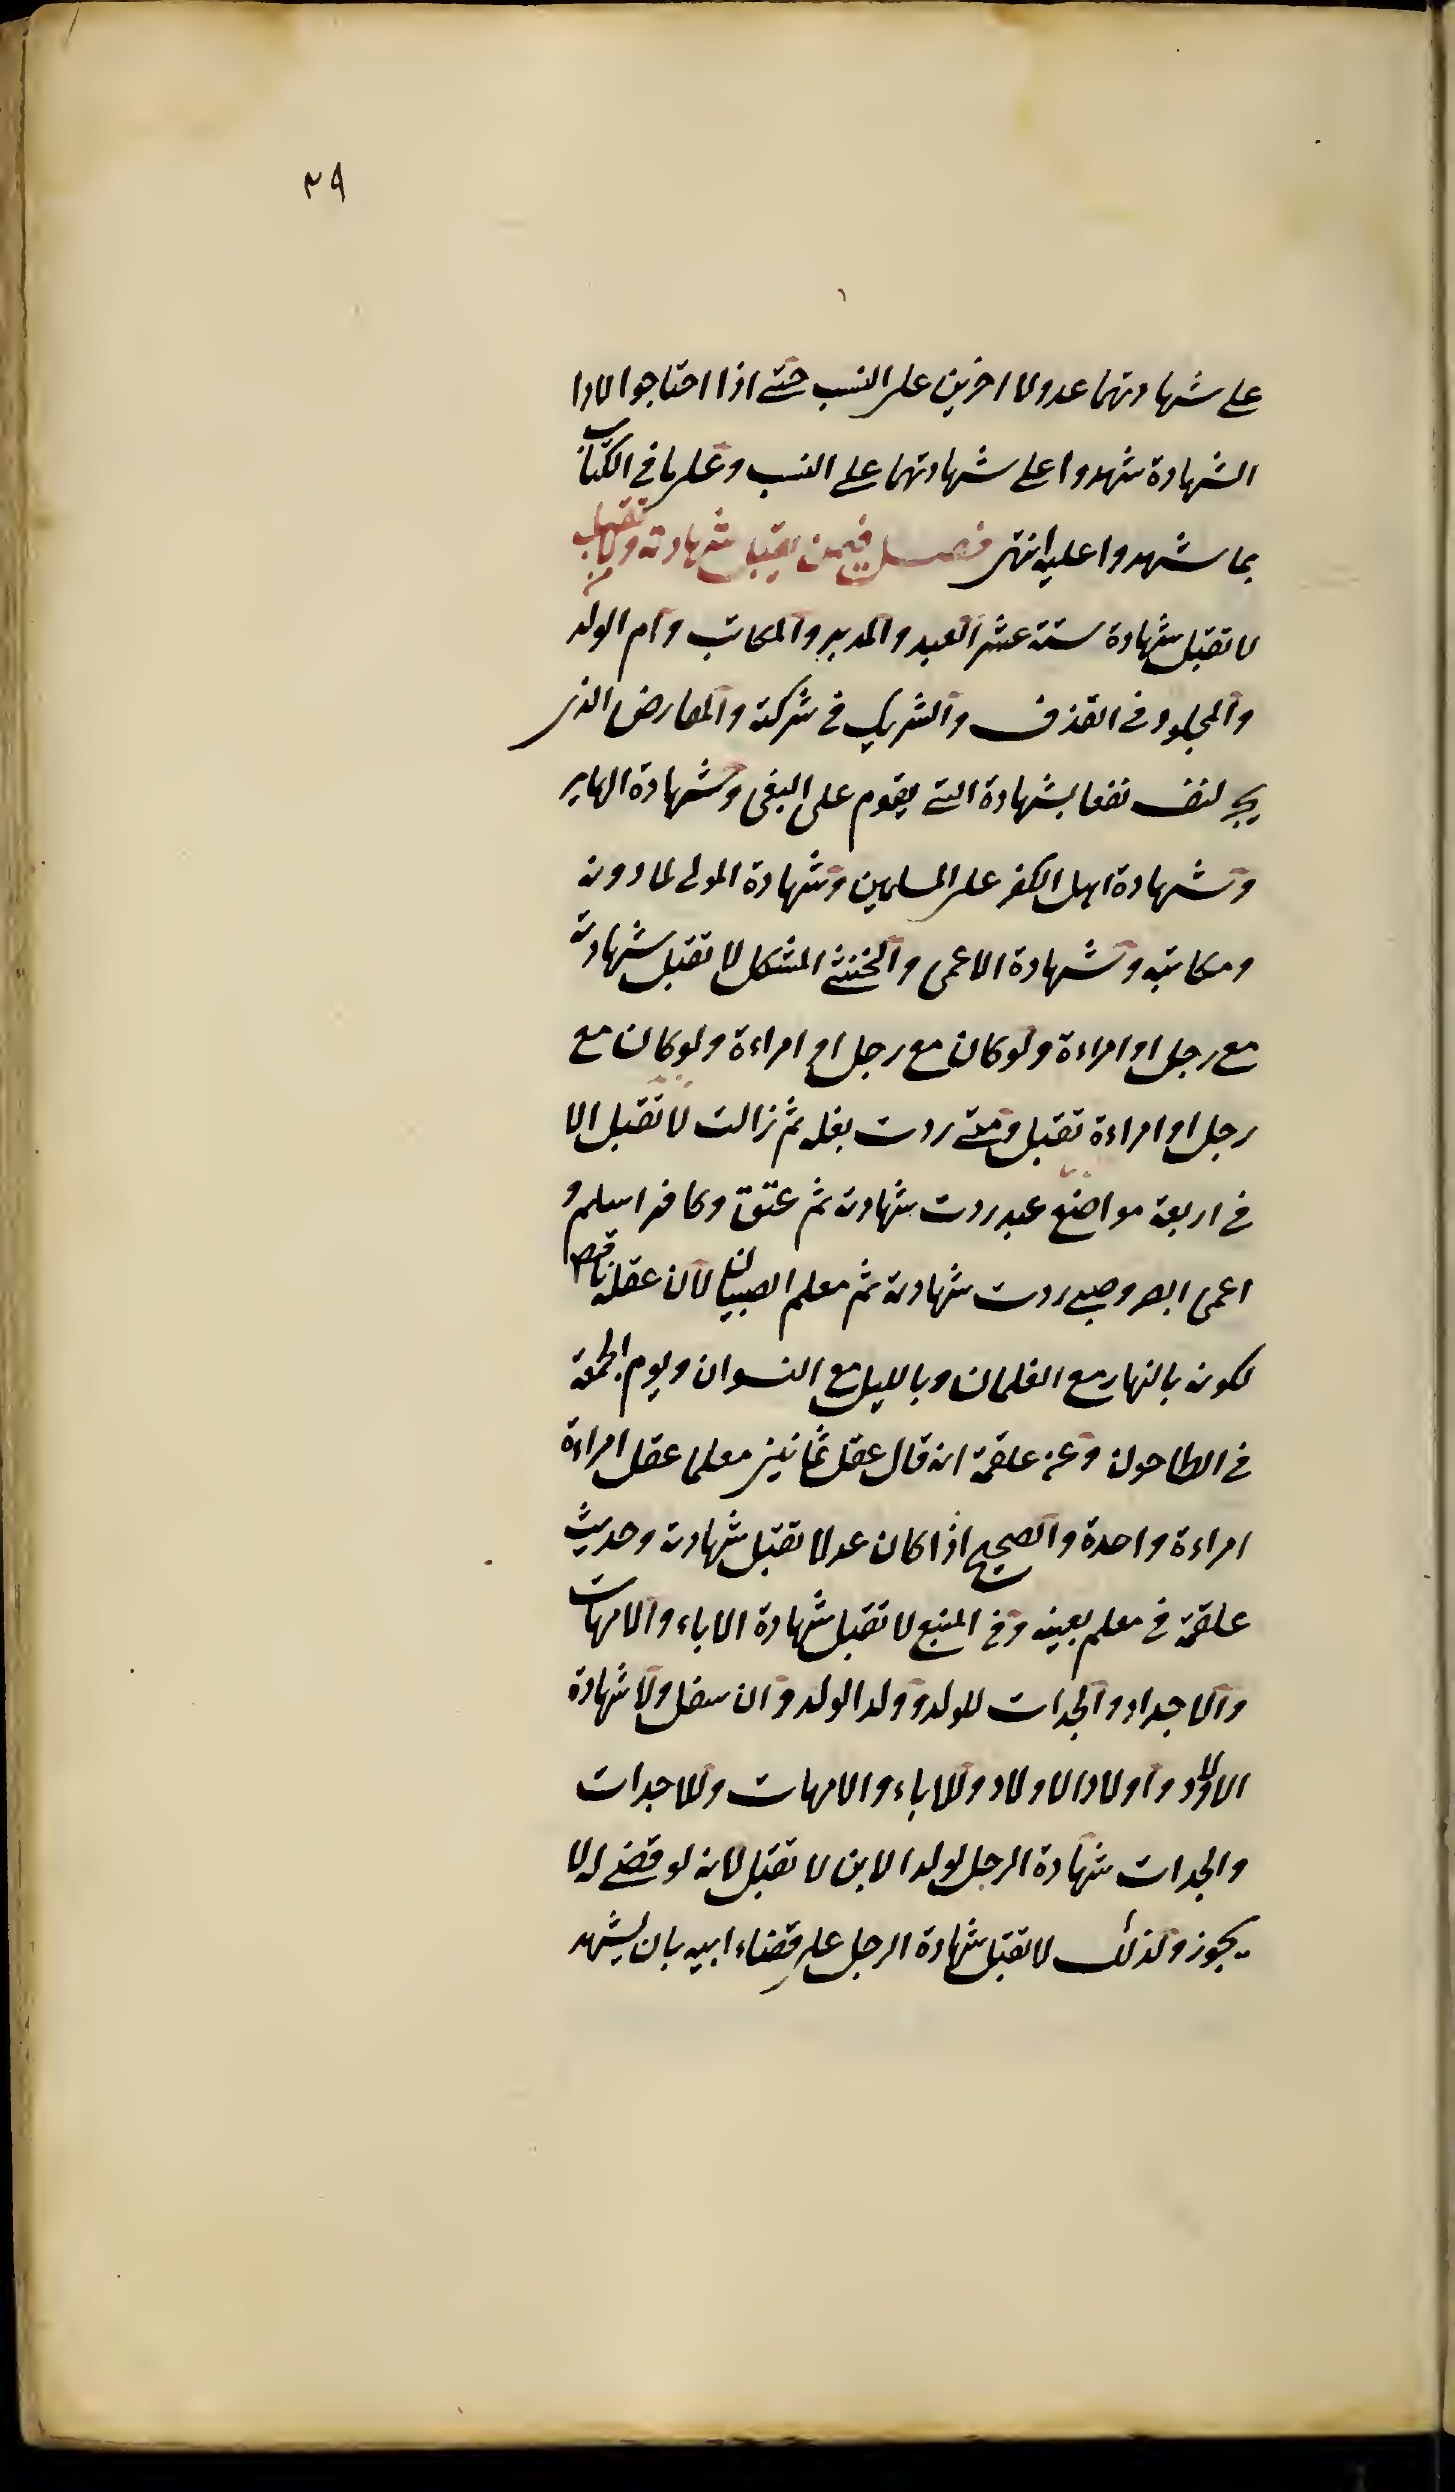 ٣٩
على شهادتهما عدولا اخرين على النسب حتى اذا احتاجوا لادا
الشهادة شهدوا على شهادتهما على النسب وعلى ما في الكتاب
بما شهدوا عليه انتهى فصل فيمن يقبل شهادته ومن لا تقبل
لا تقبل شهادة ستة عشر العبد والمدبر والمكاتب وام الولد
والمجلود في القذف والشريك في شركته والمعارض الذي
يجر لنفسه نفعا بشهادة التي يقوم على البغى وشهادة
وشهادة اهل الكفر على المسلمين وشهادة المولى لماذونه
ومكاتبه وشهادة الاعمى والخنثى المشكل لا تقبل شهادته
مع رجل او امراءة ولو كان مع رجل او امراءة ولو كان مع
رجل او امراءة تقبل ومتى ردت بعلة ثم زالت لا تقبل الا
في اربعة مواضع عبد ردت شهادته ثم عتق وكافر اسلم و
اعمى ابصر وصبى ردت شهادته ثم معلم الصبيان لان عقله ناقص
لكونه بالنهار مع الغلمان وبالليل مع النسوان ويوم الجمعة
في الطاحون وعن علقمة انه قال عقل ثمانين معلما عقل امراءة
امراءة واحدة والصحيح اذا كان عدلا تقبل شهادته وحديث
علقمة في معلم بعينه وفي المنبع لا تقبل شهادة الاباء والامهات
والاجداد والجدات للولد وولد الولد وان سفل ولا شهادة
الاولاد واولاد الاولاد وللاباء والامهات وللاجدات
والجدات شهادة الرجل لولد الابن لا تقبل لانه لو قضى له لا
يجوز وكذلك لا تقبل شهادة الرجل على قضاء ابيه بان يشهد